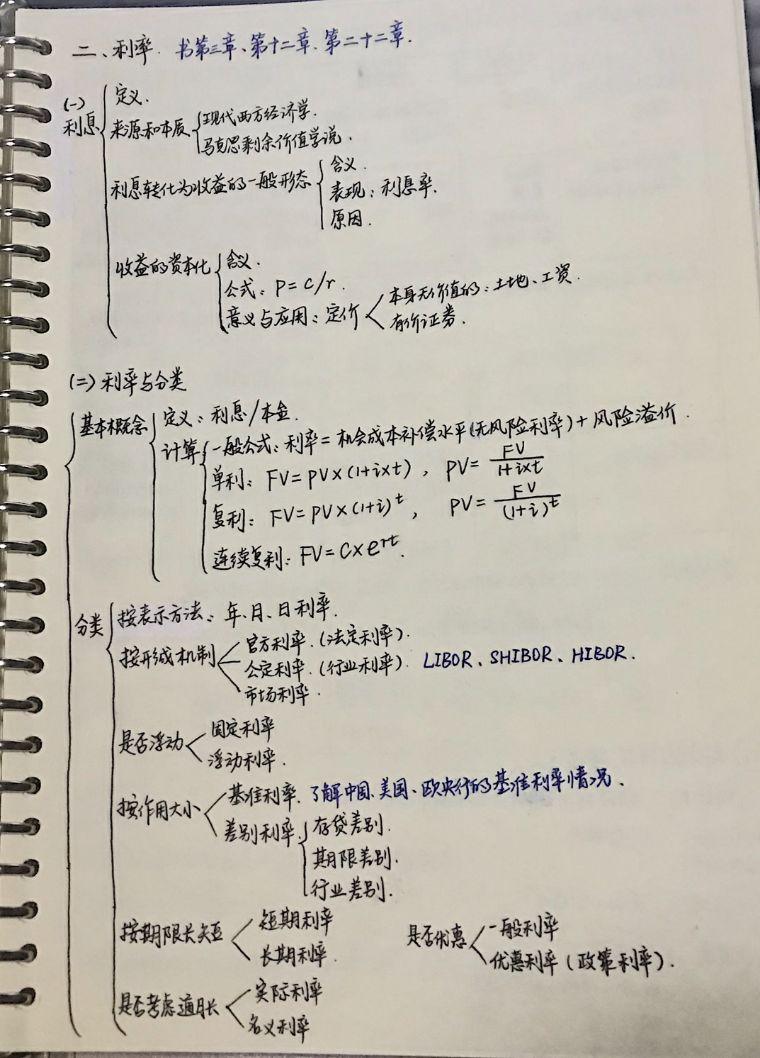 二、利率. 书第三章、第十二章、第二十二章.
(一)利息
定义.
来源和本质
现代西方经济学.
马克思剩余价值学说.
利息转化为收益的一般形态
含义.
表现：利息率.
原因.
收益的资本化
含义.
公式：P=C/r.
意义与应用：定价
本身无价值的：土地、工资.
有价证券.
(二)利率与分类
基本概念
定义：利息/本金.
计算
一般公式：利率=机会成本补偿水平(无风险利率)+风险溢价.
单利：FV=PV×(1+i×t)，PV=FV/1+i×t
复利：FV=PV×(1+i)^t，PV=FV/(1+i)^t
连续复利：FV=C×e^rt.
分类
按表示方法：年、月、日利率.
按形成机制
官方利率.(法定利率).
公定利率.(行业利率). LIBOR、SHIBOR、HIBOR.
市场利率.
是否浮动
固定利率
浮动利率.
按作用大小
基准利率. 了解中国、美国、欧央行的基准利率情况.
差别利率.
存贷差别.
期限差别.
行业差别.
按期限长短
短期利率
长期利率.
是否优惠
一般利率
优惠利率(政策利率).
是否考虑通胀
实际利率
名义利率